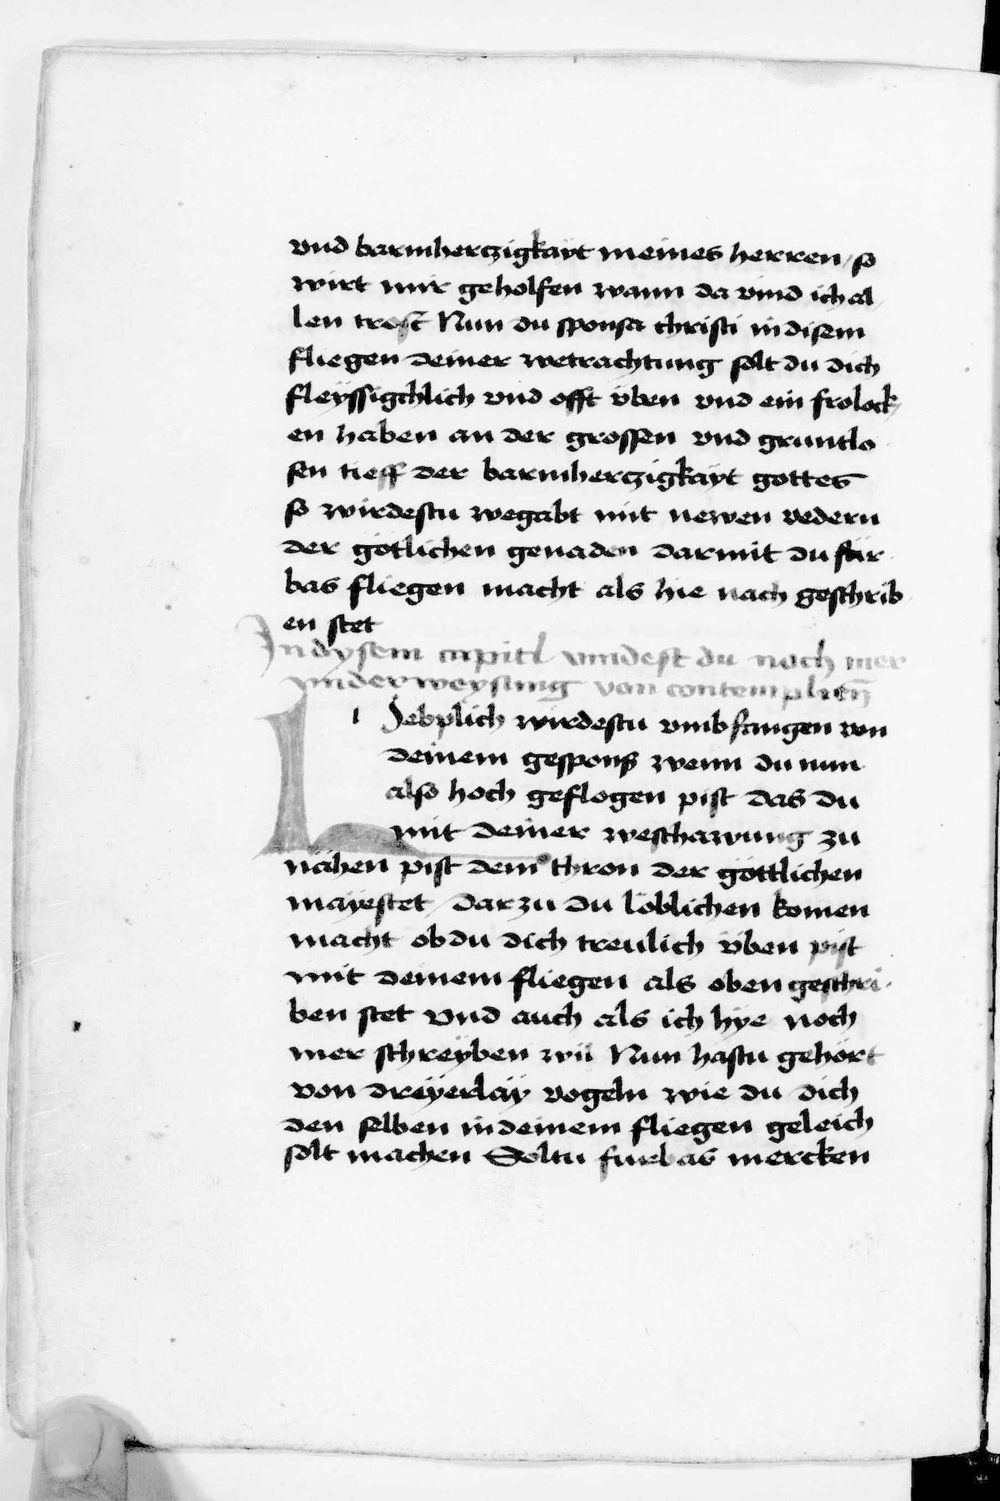 vnd barmherczigkayt meines herren / so
wirt mir geholfen wann da vind ich al
len trost Nun du sponsa christi in disem
fliegen deiner wetrachtung solt du dich
fleyssigchlich vnd offt vben vnd ein frolock
en haben an der grossen vnd gruntlo
sen tieff der barmherczigkayt gottes
so wirdestu wegabt mit newen vedern
der götlichen genaden darmit du für
bas fliegen macht als hie nach geschrib
en stet
In dysem capitl vindest du noch mer
vnderweysung von contemplirn
Lieblich wirdestu vmbfangen von
deinem gespons wenn du nun
also hoch geflogen pist das du
mit deiner weschawung zu
nähen pist dem thron der göttlichen
mayestet / dar zu du löblichen komen
macht ob du dich treulich vben pist
mit deinem fliegen als oben geschri
ben stet vnd auch als ich hye noch
mer schreyben wil Nun hastu gehört
von dreyerlay vogeln wie du dich
den selben in deinem fliegen geleich
solt machen Soltu furbas mercken